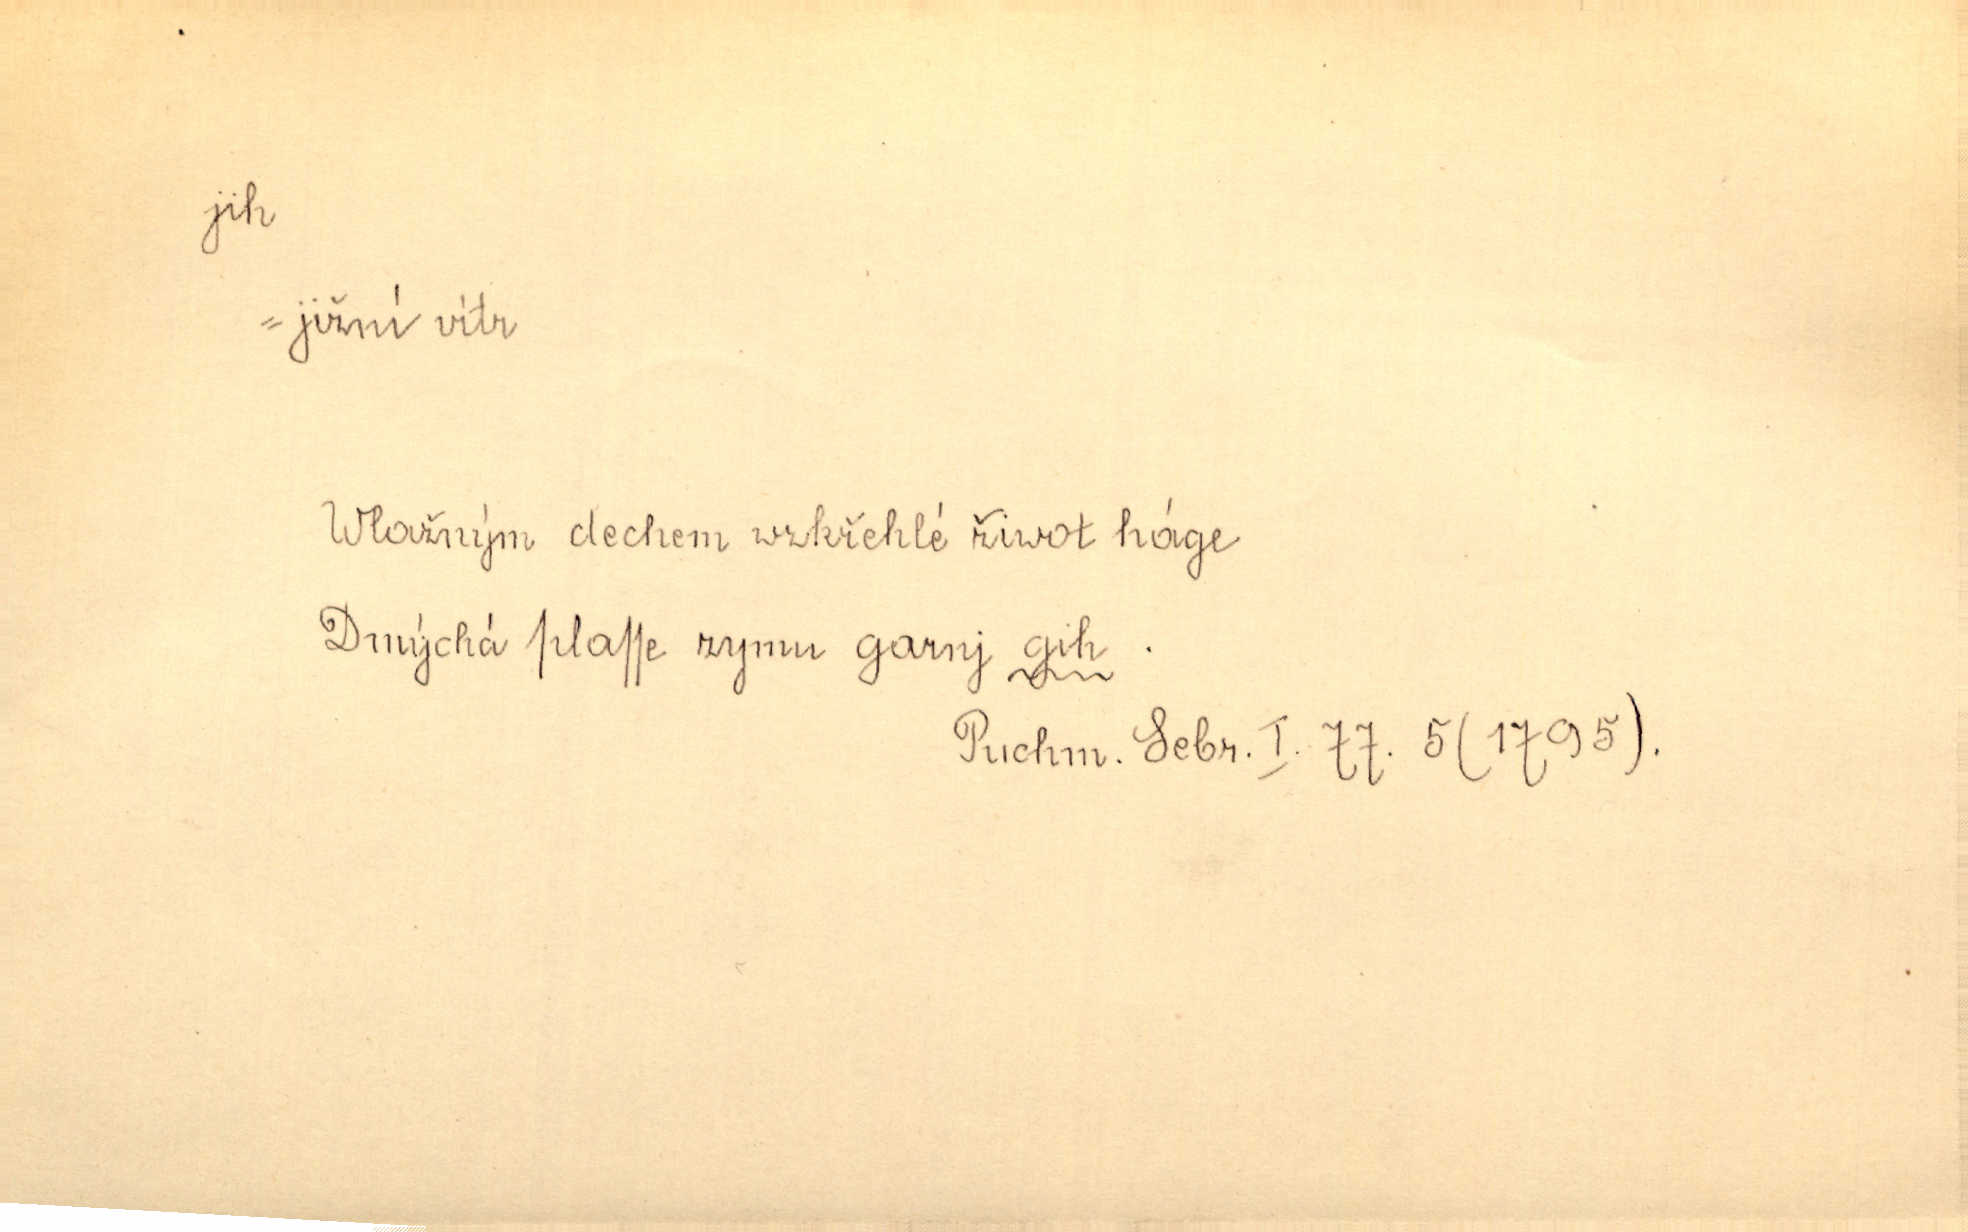 jih
= jižní vítr
Wlažným dechem wzkřehlé žiwot háge
Dmýchá plasse zymu garnj gih .
Puchm. Sebr. I. 77. 5 (1795).